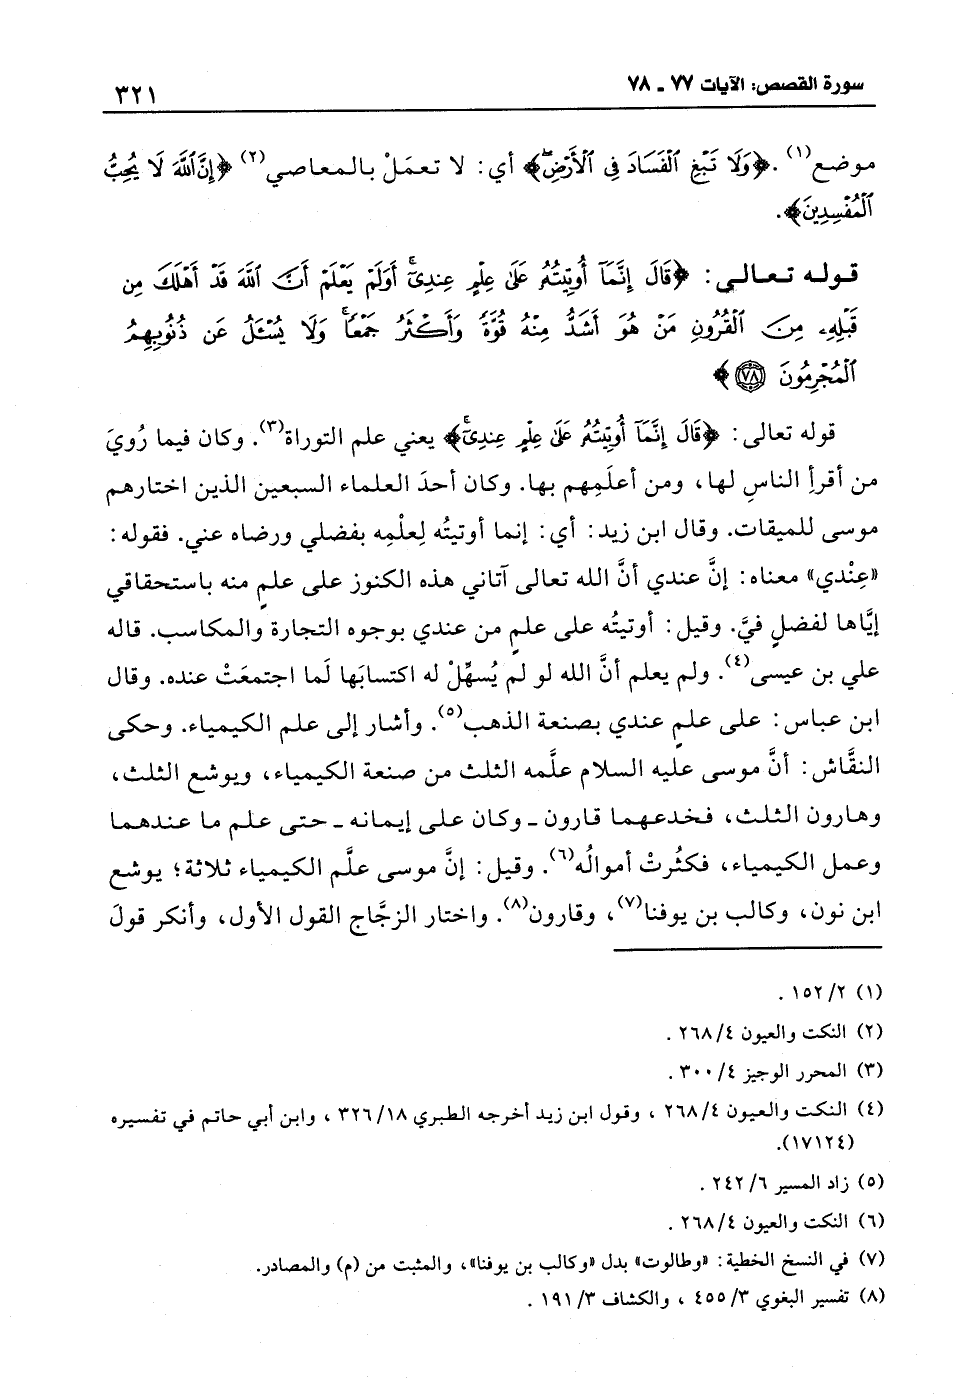 سورة القصص: الآيات ٧٧ ـ ٧٨
٣٢١
موضع(١). ﴿وَلَا تَبْغِ الْفَسَادَ فِي الْأَرْضِ﴾ أي: لا تعمَلْ بالمعاصي(٢) ﴿إِنَّ اللَّهَ لَا يُحِبُّ
الْمُفْسِدِينَ﴾.
قوله تعالى: ﴿قَالَ إِنَّمَا أُوتِيتُهُ عَلَى عِلْمٍ عِندِي أَوَلَمْ يَعْلَمْ أَنَّ اللَّهَ قَدْ أَهْلَكَ مِن
قَبْلِهِ مِنَ الْقُرُونِ مَنْ هُوَ أَشَدُّ مِنْهُ قُوَّةً وَأَكْثَرُ جَمْعًا وَلَا يُسْـَٔلُ عَن ذُنُوبِهِمُ
الْمُجْرِمُونَ ٧٨﴾
قوله تعالى: ﴿قَالَ إِنَّمَا أُوتِيتُهُ عَلَى عِلْمٍ عِندِي﴾ يعني علم التوراة(٣). وكان فيما رُويَ
من أقرأِ الناسِ لها، ومن أعلَمِهم بها. وكان أحدَ العلماء السبعين الذين اختارهم
موسى للميقات. وقال ابن زيد: أي: إنما أوتيتُه لِعلْمِه بفضلي ورضاه عني. فقوله:
«عِنْدي» معناه: إنَّ عندي أنَّ الله تعالى آتاني هذه الكنوز على علمٍ منه باستحقاقي
إيَّاها لفضلٍ فيَّ. وقيل: أوتيتُه على علمٍ من عندي بوجوه التجارة والمكاسب. قاله
علي بن عيسى(٤). ولم يعلم أنَّ الله لو لم يُسهِّلْ له اكتسابَها لَما اجتمعَتْ عنده. وقال
ابن عباس: على علمٍ عندي بصنعة الذهب(٥). وأشار إلى علم الكيمياء. وحكى
النقَّاش: أنَّ موسى عليه السلام علَّمه الثلث من صنعة الكيمياء، ويوشع الثلث،
وهارون الثلث، فخدعهما قارون ـ وكان على إيمانه ـ حتى علم ما عندهما
وعمل الكيمياء، فكثُرتْ أموالُه(٦). وقيل: إنَّ موسى علَّم الكيمياء ثلاثة؛ يوشع
ابن نون، وكالب بن يوفنا(٧)، وقارون(٨). واختار الزجَّاج القول الأول، وأنكر قولَ
(١) ١٥٢/٢ .
(٢) النكت والعيون ٢٦٨/٤ .
(٣) المحرر الوجيز ٣٠٠/٤ .
(٤) النكت والعيون ٢٦٨/٤ ، وقول ابن زيد أخرجه الطبري ٣٢٦/١٨ ، وابن أبي حاتم في تفسيره
(١٧١٢٤).
(٥) زاد المسير ٢٤٢/٦ .
(٦) النكت والعيون ٢٦٨/٤ .
(٧) في النسخ الخطية: «وطالوت» بدل «وكالب بن يوفنا»، والمثبت من (م) والمصادر.
(٨) تفسير البغوي ٤٥٥/٣ ، والكشاف ١٩١/٣ .